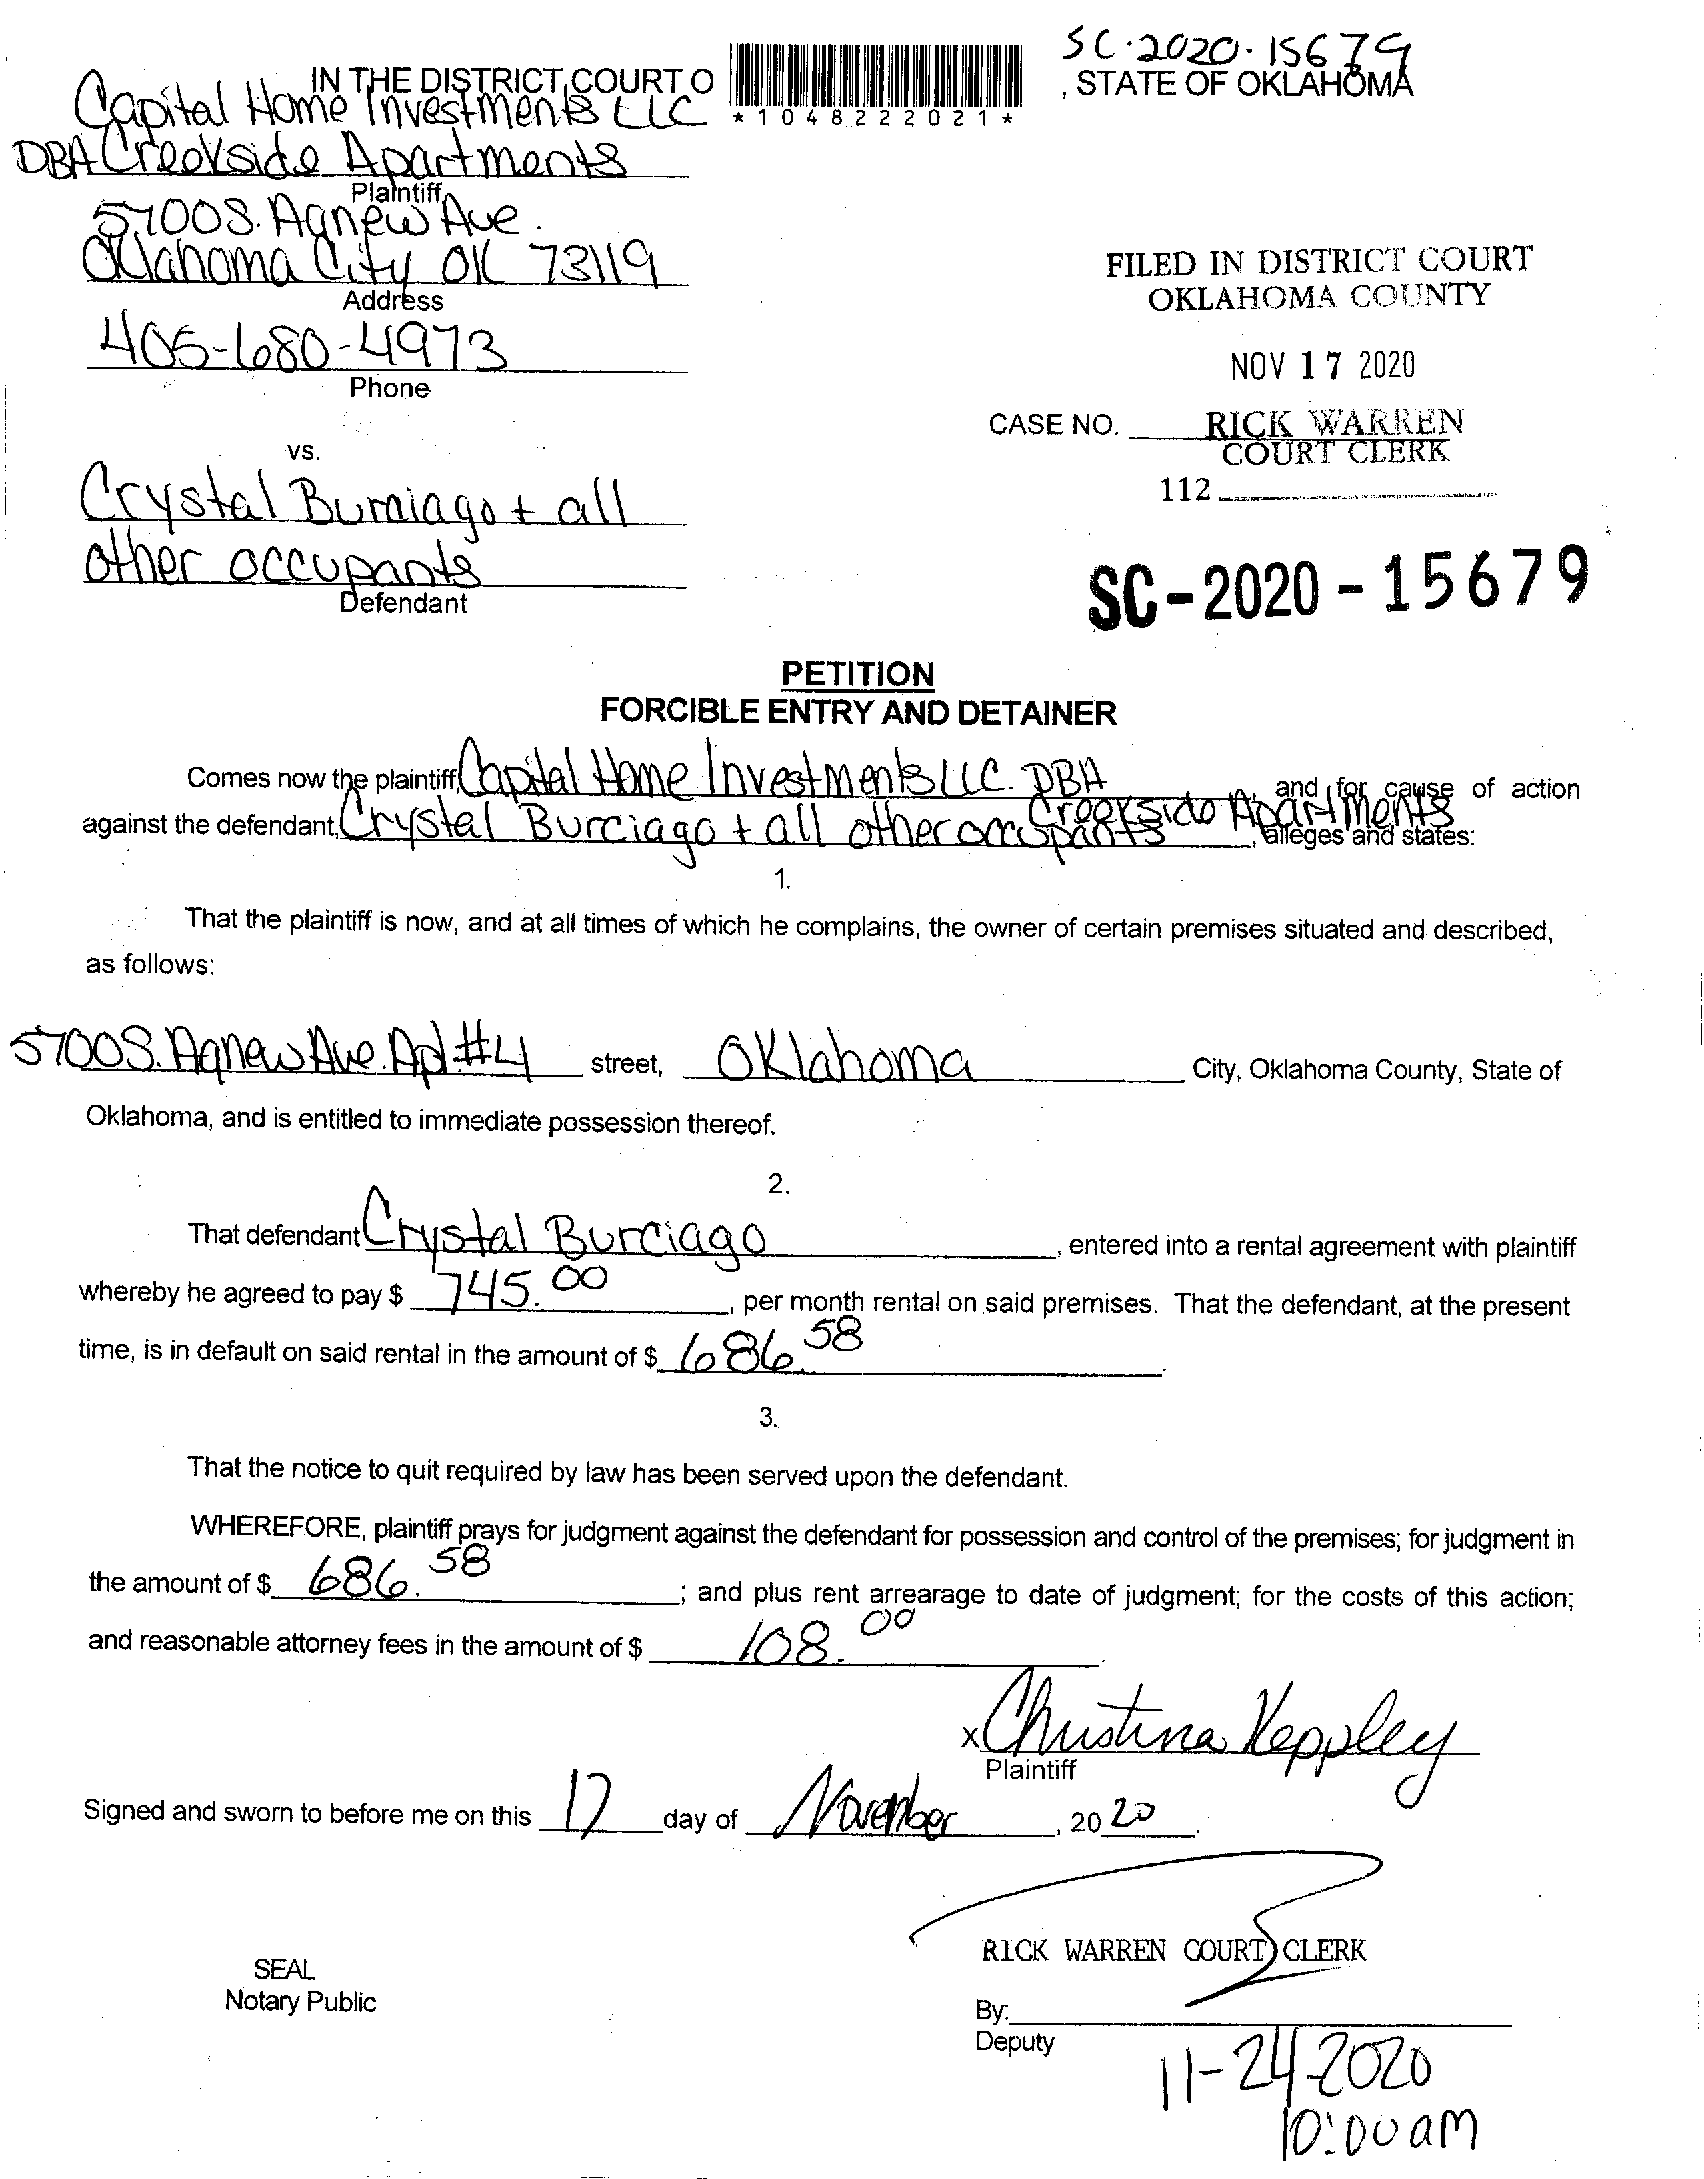 SC-2020-15679
IN THE DISTRICT COURT O
, STATE OF OKLAHOMA
*1048222021*
Capital Home Investments LLC
DBA Creekside Apartments
Plaintiff
5700 S. Agnew Ave.
Oklahoma City OK 73119
Address
405-680-4973
Phone
FILED IN DISTRICT COURT
OKLAHOMA COUNTY
NOV 17 2020
CASE NO.
RICK WARREN
COURT CLERK
112
vs.
Crystal Burciago + all
other occupants
Defendant
SC-2020-15679
PETITION
FORCIBLE ENTRY AND DETAINER
Comes now the plaintiff, Capital Home Investments LLC. DBA Creekside Apartments, and for cause of action
against the defendant, Crystal Burciago + all other occupants, alleges and states:
1.
That the plaintiff is now, and at all times of which he complains, the owner of certain premises situated and described,
as follows:
5700 S. Agnew Ave. Apt #4 street, Oklahoma City, Oklahoma County, State of
Oklahoma, and is entitled to immediate possession thereof.
2.
That defendant Crystal Burciago, entered into a rental agreement with plaintiff
whereby he agreed to pay $ 745.00, per month rental on said premises. That the defendant, at the present
time, is in default on said rental in the amount of $ 686.58
3.
That the notice to quit required by law has been served upon the defendant.
WHEREFORE, plaintiff prays for judgment against the defendant for possession and control of the premises; for judgment in
the amount of $ 686.58; and plus rent arrearage to date of judgment; for the costs of this action;
and reasonable attorney fees in the amount of $ 108.00.
x Christina Keppley
Plaintiff
Signed and sworn to before me on this 17 day of November, 2020.
RICK WARREN COURT CLERK
SEAL
Notary Public
By:
Deputy
11-24-2020
10:00am